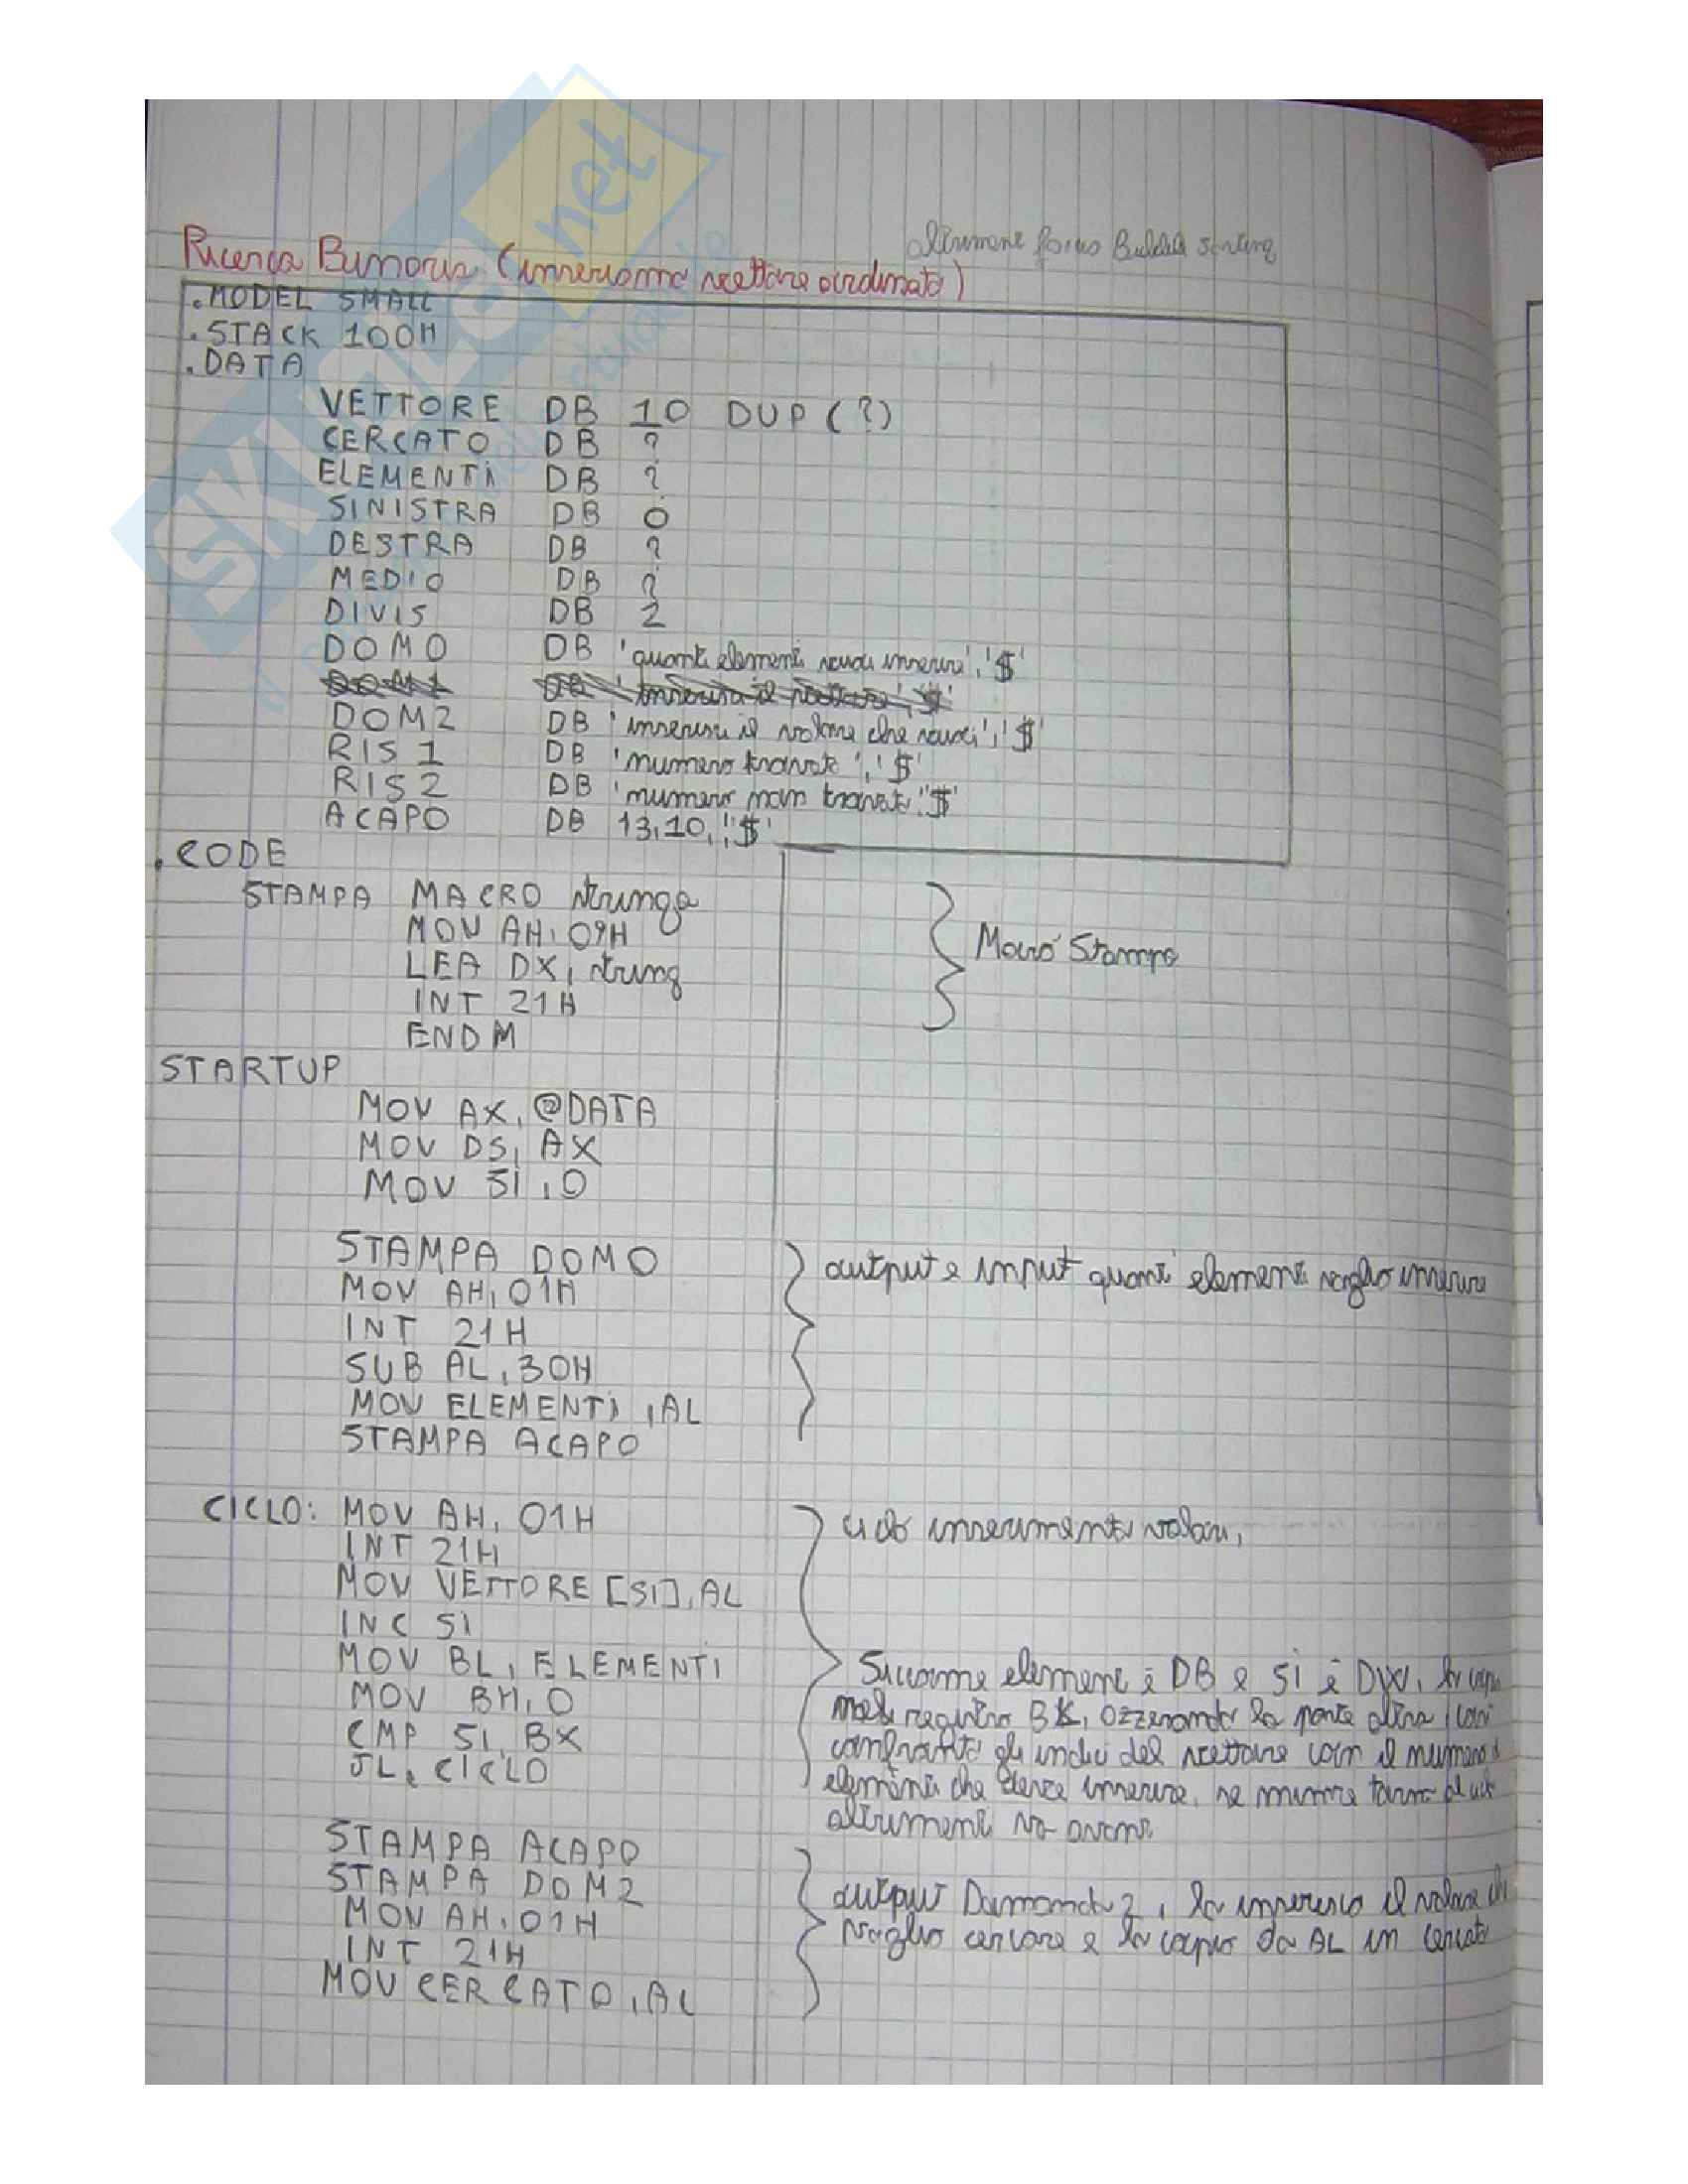 altrimenti faccio Bubble sorting
Ricerca Binaria (inseriamo vettore ordinato)
.MODEL SMALL
.STACK 100H
.DATA
VETTORE DB 10 DUP (?)
CERCATO DB ?
ELEMENTI DB ?
SINISTRA DB 0
DESTRA DB ?
MEDIO DB ?
DIVIS DB 2
DOM0 DB 'quanti elementi vuoi inserire','$'
DOM1 DB 'inserisci il vettore','$'
DOM2 DB 'inserisci il valore che vuoi','$'
RIS1 DB 'numero trovato','$'
RIS2 DB 'numero non trovato','$'
ACAPO DB 13,10,'$'
.CODE
STAMPA MACRO stringa
MOV AH, 09H
LEA DX, string
INT 21H
ENDM
Macro Stampa
STARTUP
MOV AX, @DATA
MOV DS, AX
MOV SI, 0
STAMPA DOM0
MOV AH, 01H
INT 21H
SUB AL, 30H
MOV ELEMENTI, AL
STAMPA ACAPO
output e input quanti elementi voglio inserire
CICLO: MOV AH, 01H
INT 21H
MOV VETTORE [SI], AL
INC SI
MOV BL, ELEMENTI
MOV BH, 0
CMP SI, BX
JL CICLO
ciclo inserimento valori,
Siccome elementi è DB e SI è DW, lo copio
nel registro BX, azzerando la parte alta, così
confronto gli indici del vettore con il numero di
elementi che devo inserire, se minore torna al ciclo
altrimenti va avanti
STAMPA ACAPO
STAMPA DOM2
MOV AH, 01H
INT 21H
MOV CERCATO, AL
output Domanda 2, lo inserisco il valore che
voglio cercare e lo copio da AL in cercato
SKUOLA.net